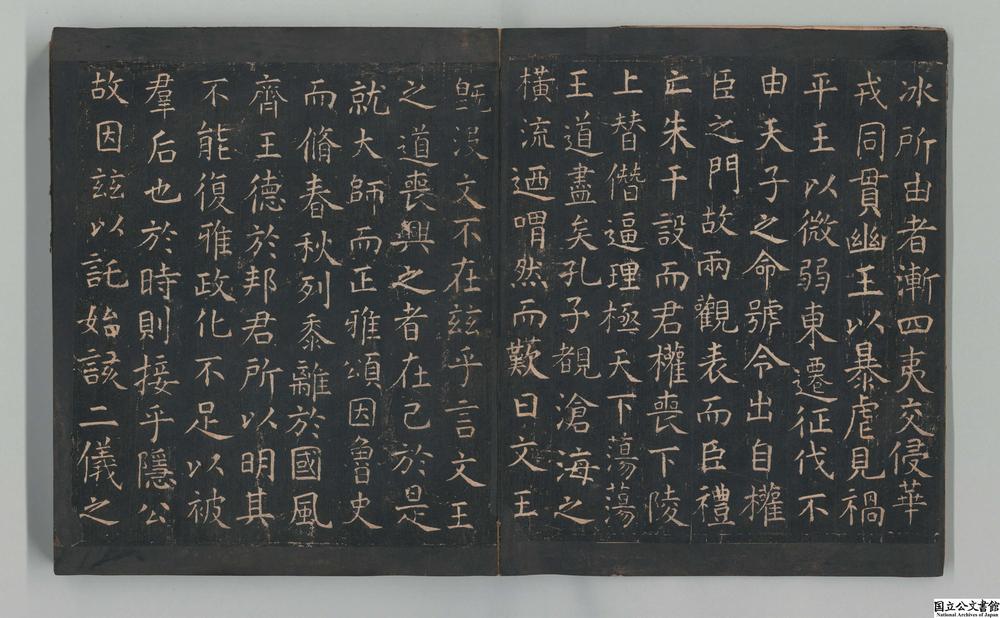 冰所由者漸四夷交侵華
戎同貫幽王以暴虐見禍
平王以微弱東遷征伐不
由天子之命號令出自權
臣之門故兩觀表而臣禮
亡朱干設而君權喪下陵
上替僭逼理極天下蕩蕩
王道盡矣孔子覩滄海之
橫流迺喟然而歎曰文王
既沒文不在茲乎言文王
之道喪興之者在己於是
就大師而正雅頌因魯史
而脩春秋列黍離於國風
齊王德於邦君所以明其
不能復雅政化不足以被
羣后也於時則接乎隱公
故因茲以託始該二儀之
国立公文書館
National Archives of Japan